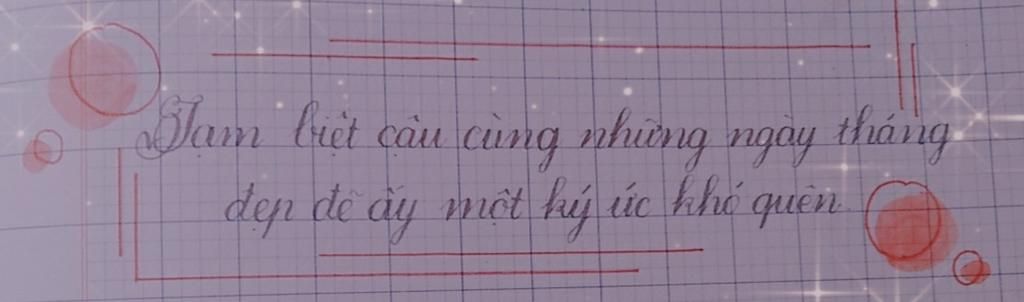 Tạm biệt cậu cùng những ngày tháng
đẹp đẽ ấy một ký ức khó quên